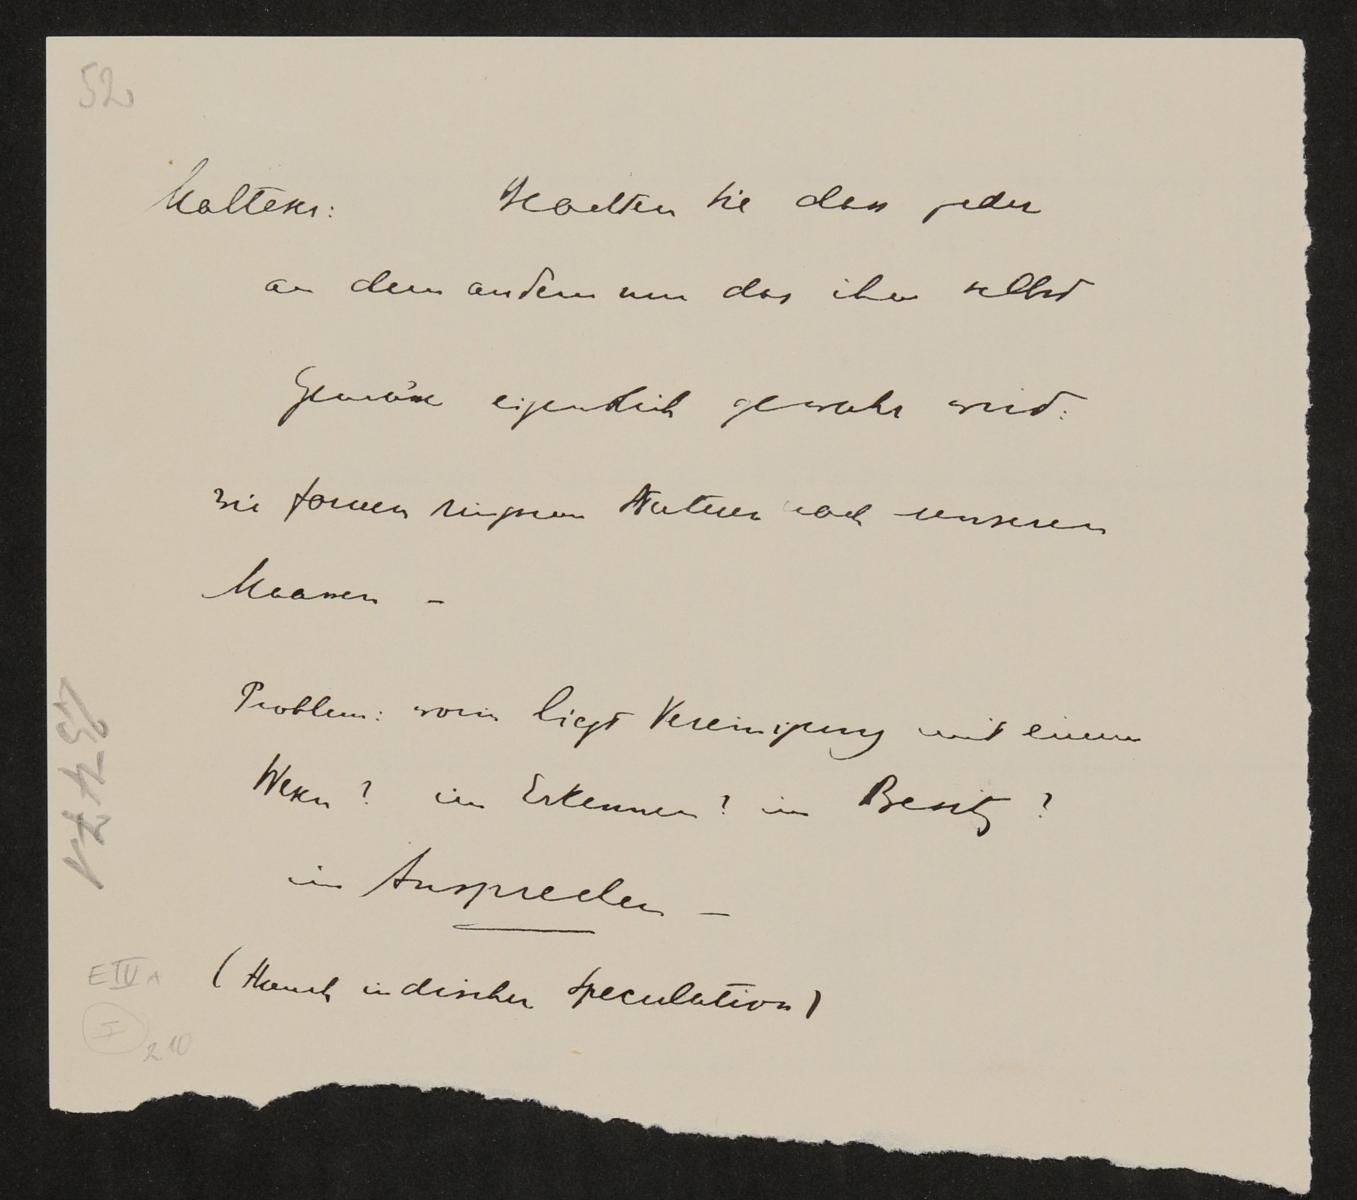 52
Malteser: Beachten Sie dass jeder
an dem andern nur das ihm selbst
Gemässe eigentlich gewahr wird:
wir formen ringsum Naturen nach unseren
Maassen –
Problem: worin liegt Vereinigung mit einem
Wesen? im Erkennen? im Besitz?
im Ansprechen –
(Hauch indischer Speculation)
E IV A
I
210